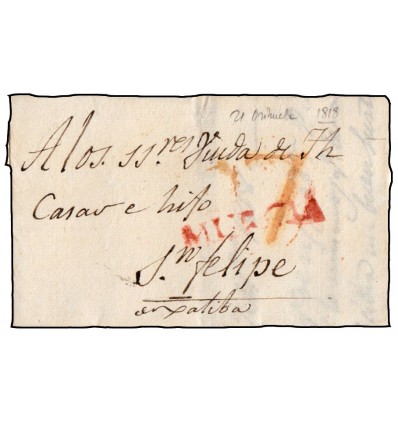 21 Orihuela 1818
A los ss.res Viuda de Th
17
Casas e hijo
MURCIA
S.n felipe
en xatiba